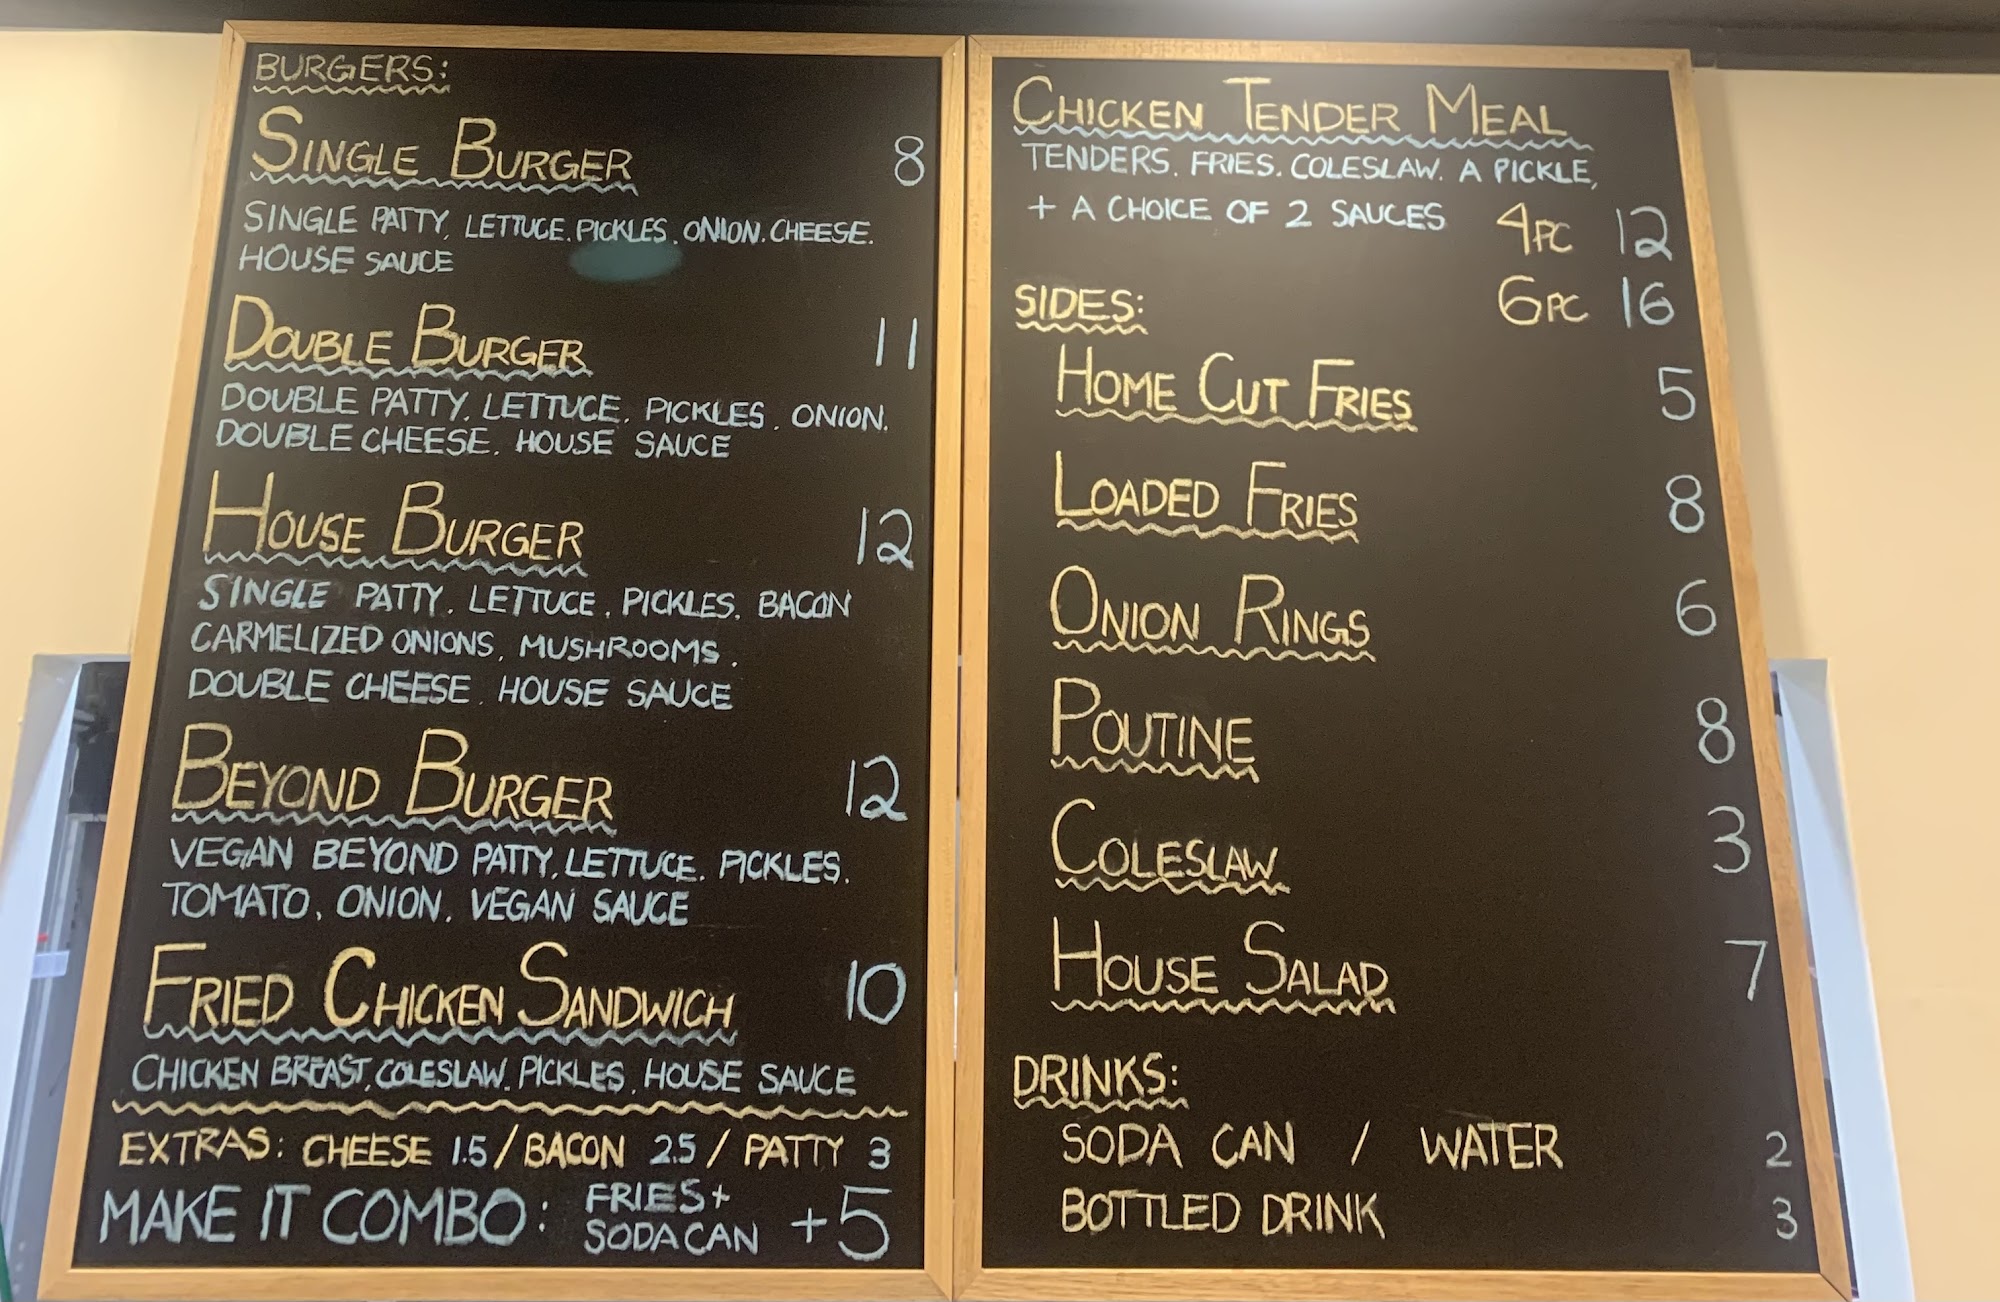 BURGERS:
SINGLE BURGER 8
SINGLE PATTY, LETTUCE. PICKLES. ONION. CHEESE.
HOUSE SAUCE
DOUBLE BURGER 11
DOUBLE PATTY, LETTUCE, PICKLES, ONION.
DOUBLE CHEESE. HOUSE SAUCE
HOUSE BURGER 12
SINGLE PATTY, LETTUCE, PICKLES. BACON
CARMELIZED ONIONS, MUSHROOMS.
DOUBLE CHEESE. HOUSE SAUCE
BEYOND BURGER 12
VEGAN BEYOND PATTY, LETTUCE. PICKLES.
TOMATO, ONION. VEGAN SAUCE
FRIED CHICKEN SANDWICH 10
CHICKEN BREAST, COLESLAW. PICKLES, HOUSE SAUCE
EXTRAS: CHEESE 1.5 / BACON 2.5 / PATTY 3
MAKE IT COMBO: FRIES + SODA CAN +5
CHICKEN TENDER MEAL
TENDERS. FRIES. COLESLAW. A PICKLE,
+ A CHOICE OF 2 SAUCES 4PC 12
6PC 16
SIDES:
HOME CUT FRIES 5
LOADED FRIES 8
ONION RINGS 6
POUTINE 8
COLESLAW 3
HOUSE SALAD 7
DRINKS:
SODA CAN / WATER 2
BOTTLED DRINK 3